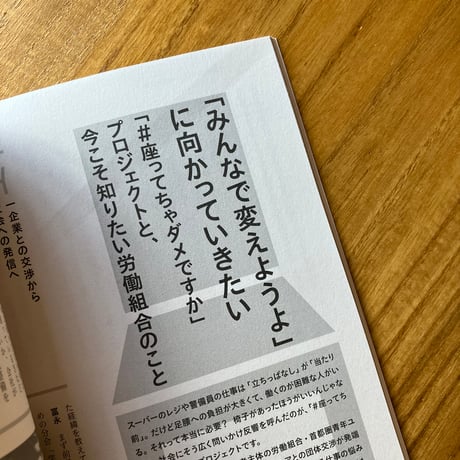 「みんなで変えようよ」
に向かっていきたい
「#座ってちゃダメですか」
プロジェクトと、
今こそ知りたい労働組合のこと
スーパーのレジや警備員の仕事は「立ちっぱなし」が「当たり
前」。だけど足腰への負担が大きくて、働くのが困難な人がい
る。それって本当に必要？ 椅子があったほうがいいんじゃな
社会にそう広く問いかけ反響を呼んだのが、「#座ってち
プロジェクトです。
主体の労働組合・首都圏青年ユ
アとの団体交渉が発端
仕事の悩み
一企業との交渉から
会への発信へ
た経緯を教えて
冨永
まず
的
めの分会